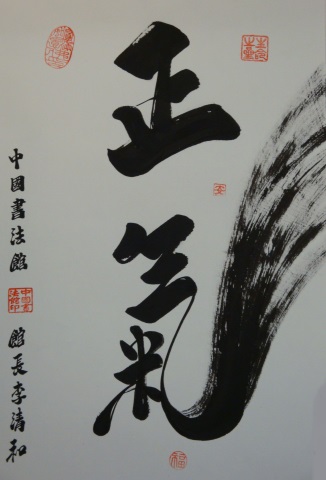 正氣
中國書法館
館長李清和
福